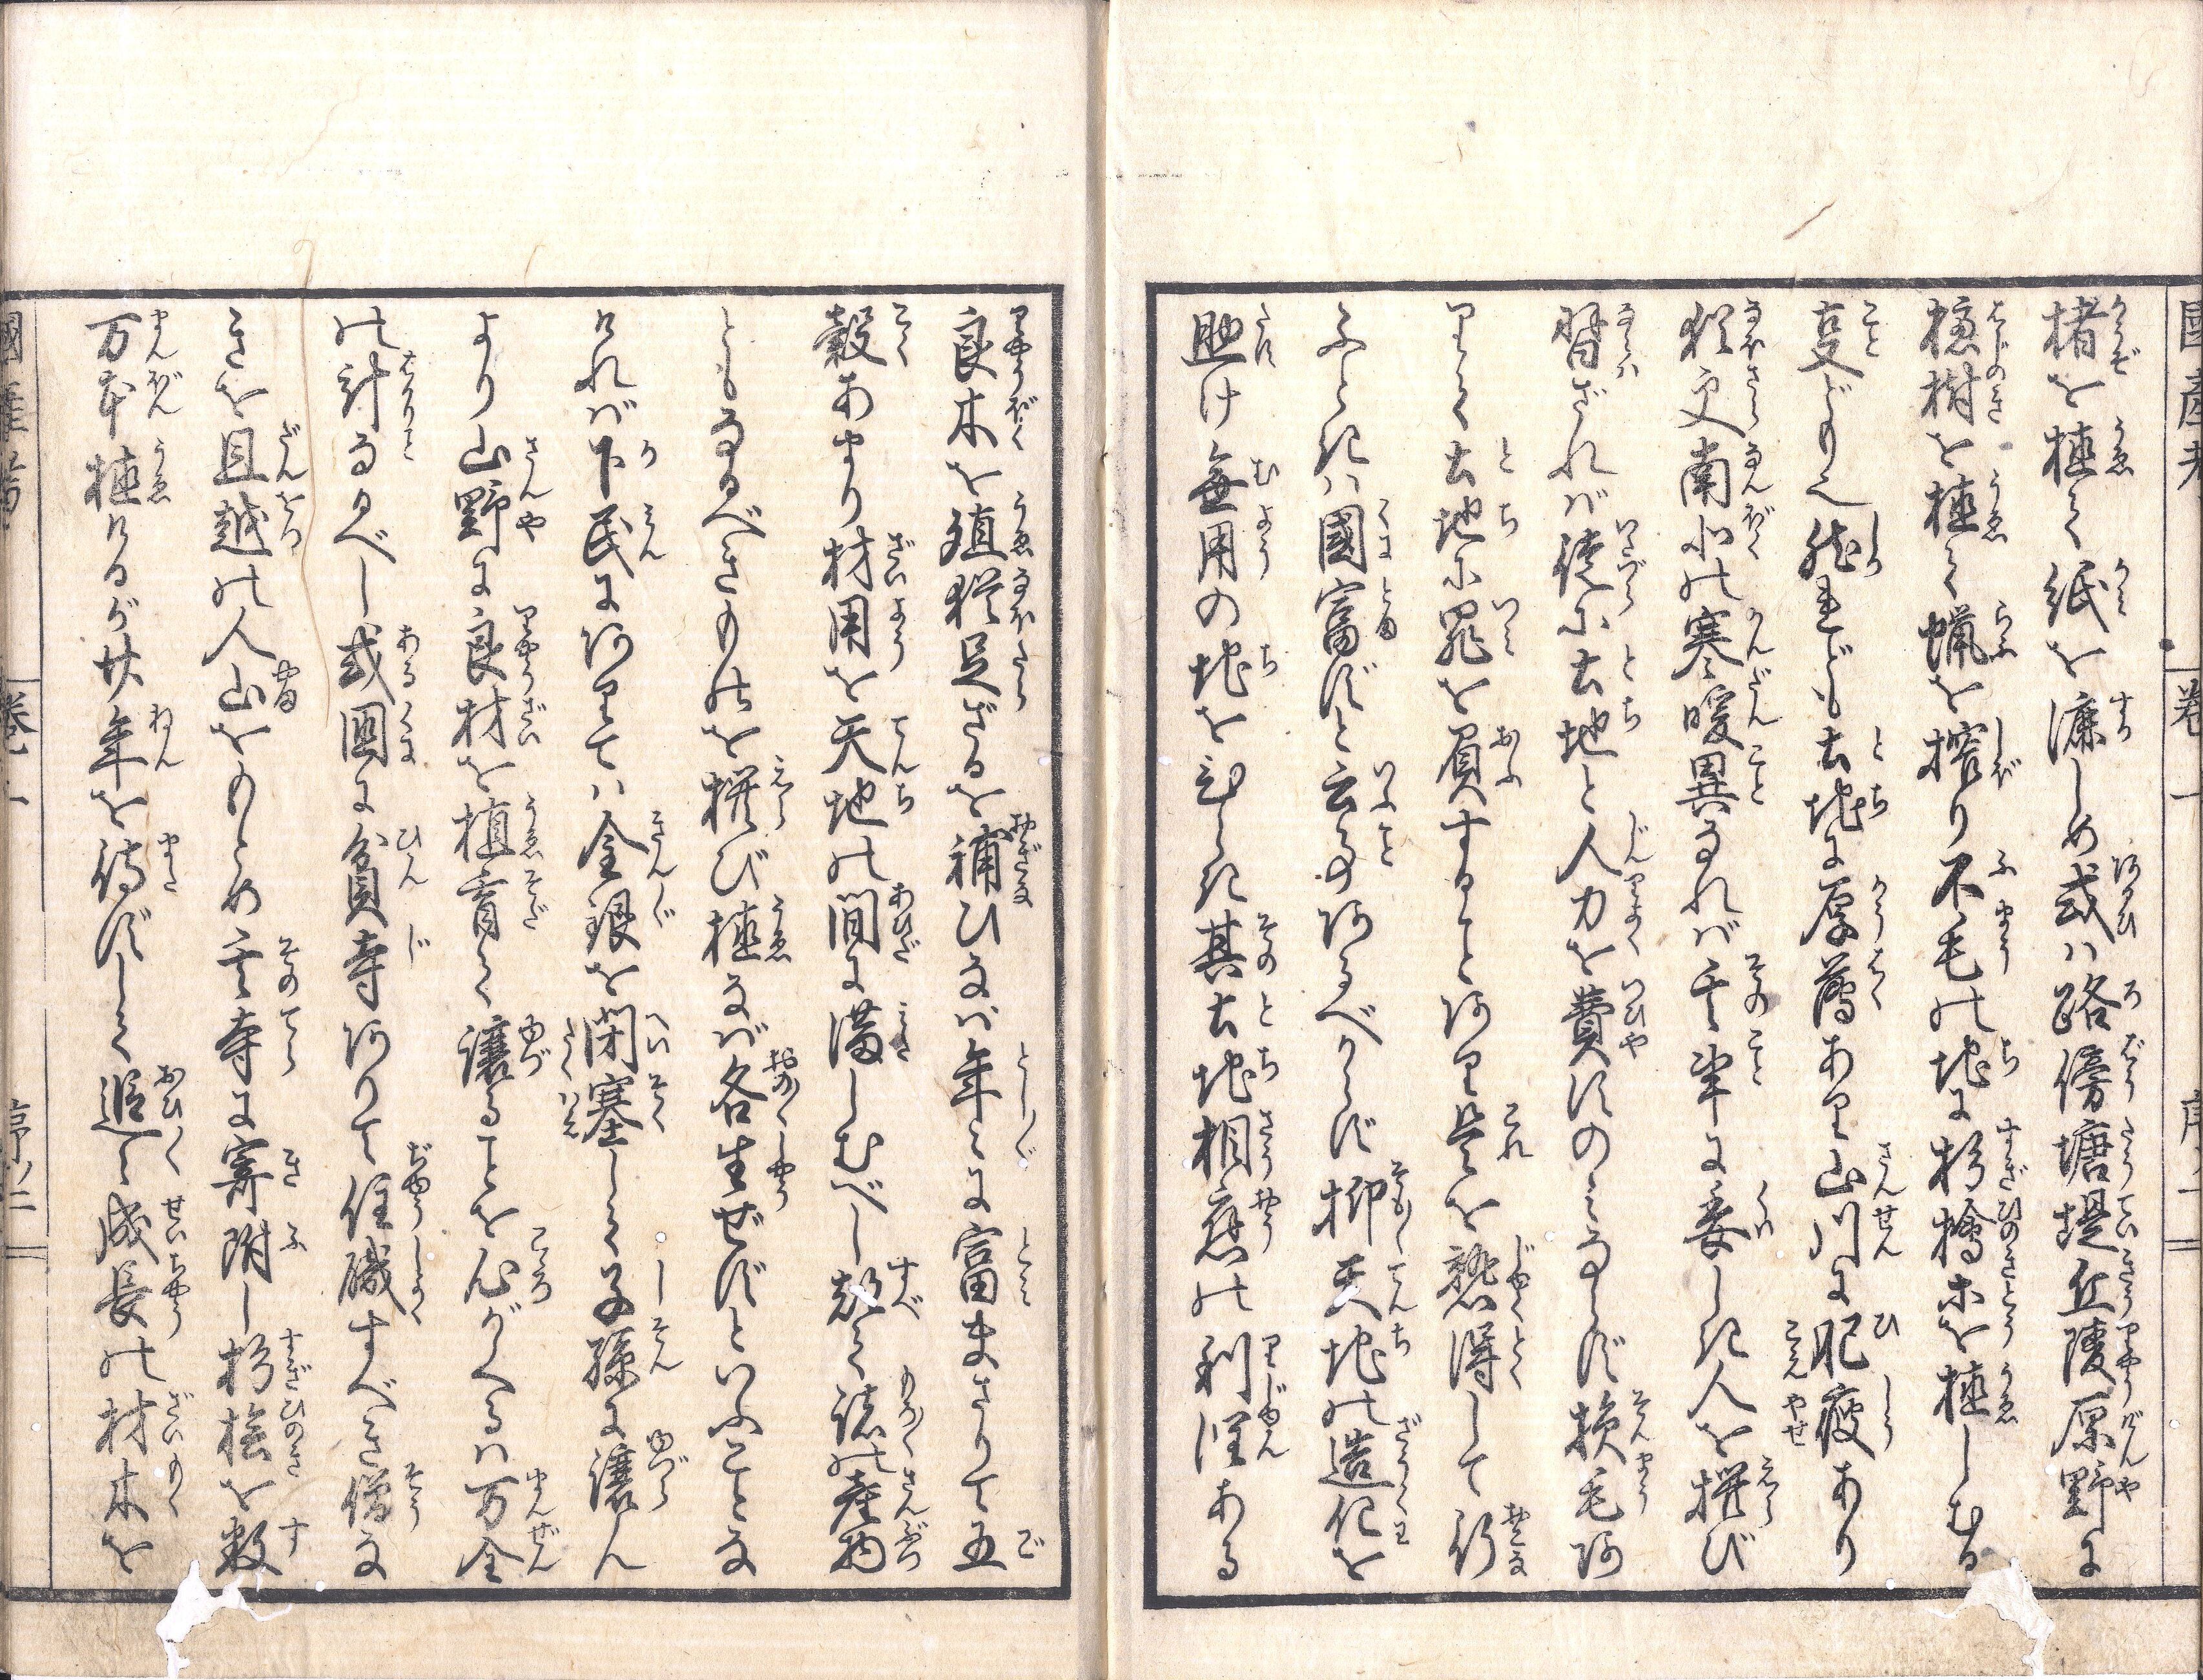 楮を植て紙を漉しめ或ハ路傍塘堤丘陵原野に
櫨樹を植て蝋を搾り不毛の地に杉檜等を植しむる
事どもなり然れども土地に厚薄あり山川に肥瘦あり
猶更南北の寒暖異なれば其事に委しき人を撰び
習ざれば徒に土地と人力を費すのみならず損毛あ
りて土地に罪を負することあり是を熟得して行
ふときハ國富ずと云事あるべからず抑天地の造化を
助け無用の地をひらき其土地相應の利潤ある
良木を殖猶足ざるを補ひなバ年々に富まさりて五
穀あまり材用を天地の間に満しむべし都て諸の産物
ともなるべきものを撰び植なバ各生ぜずといふことな
けれバ下民にありてハ金銀を閉塞して子孫に譲ん
より山野に良材を植育て譲ることを心がくるハ万全
の計なるべし或國に貧寺ありて住職すべき僧な
きを且越の人山をもとめ其寺に寄附し杉桧を数
万本植けるが廿年を待ずして追々成長の材木を
國産考 卷一 序ノ二